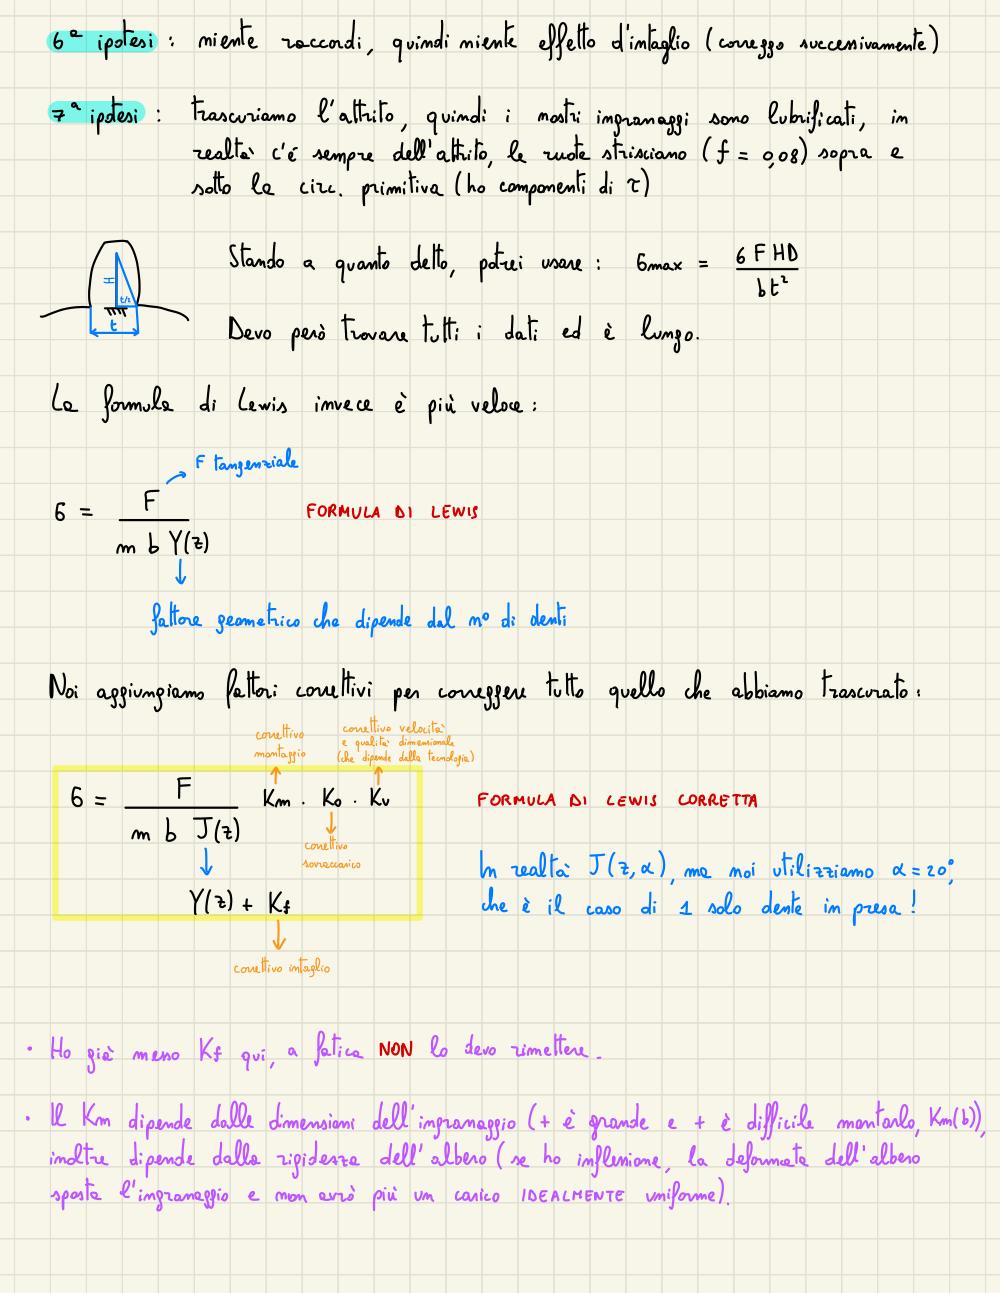 6ª ipotesi : niente raccordi, quindi niente effetto d'intaglio (correggo successivamente)
7ª ipotesi : trascuriamo l'attrito, quindi i nostri ingranaggi sono lubrificati, in
realtà c'é sempre dell'attrito, le ruote strisciano (f = 0,08) sopra e
sotto la circ. primitiva (ho componenti di τ)
Stando a quanto detto, potrei usare : σmax = 6 F HD / bt²
H
t/2
t
Devo però trovare tutti i dati ed è lungo.
La formula di Lewis invece è più veloce :
F tangenziale
σ = F / m b Y(z)
FORMULA DI LEWIS
fattore geometrico che dipende dal n° di denti
Noi aggiungiamo fattori correttivi per correggere tutto quello che abbiamo trascurato :
correttivo montaggio
correttivo velocità
e qualità dimensionale
(che dipende dalla tecnologia)
σ = F / m b J(z) Km · Ko · Kv
FORMULA DI LEWIS CORRETTA
correttivo
sovraccarico
In realtà J(z, α), ma noi utilizziamo α = 20°,
che è il caso di 1 solo dente in presa !
Y(z) + Kf
correttivo intaglio
· Ho già messo Kf qui, a fatica NON lo devo rimettere.
· Il Km dipende dalle dimensioni dell'ingranaggio (+ è grande e + è difficile montarlo, Km(b)),
inoltre dipende dalla rigidezza dell'albero (se ho inflessione, la deformata dell'albero
sposta l'ingranaggio e non avrò più un carico IDEALMENTE uniforme).